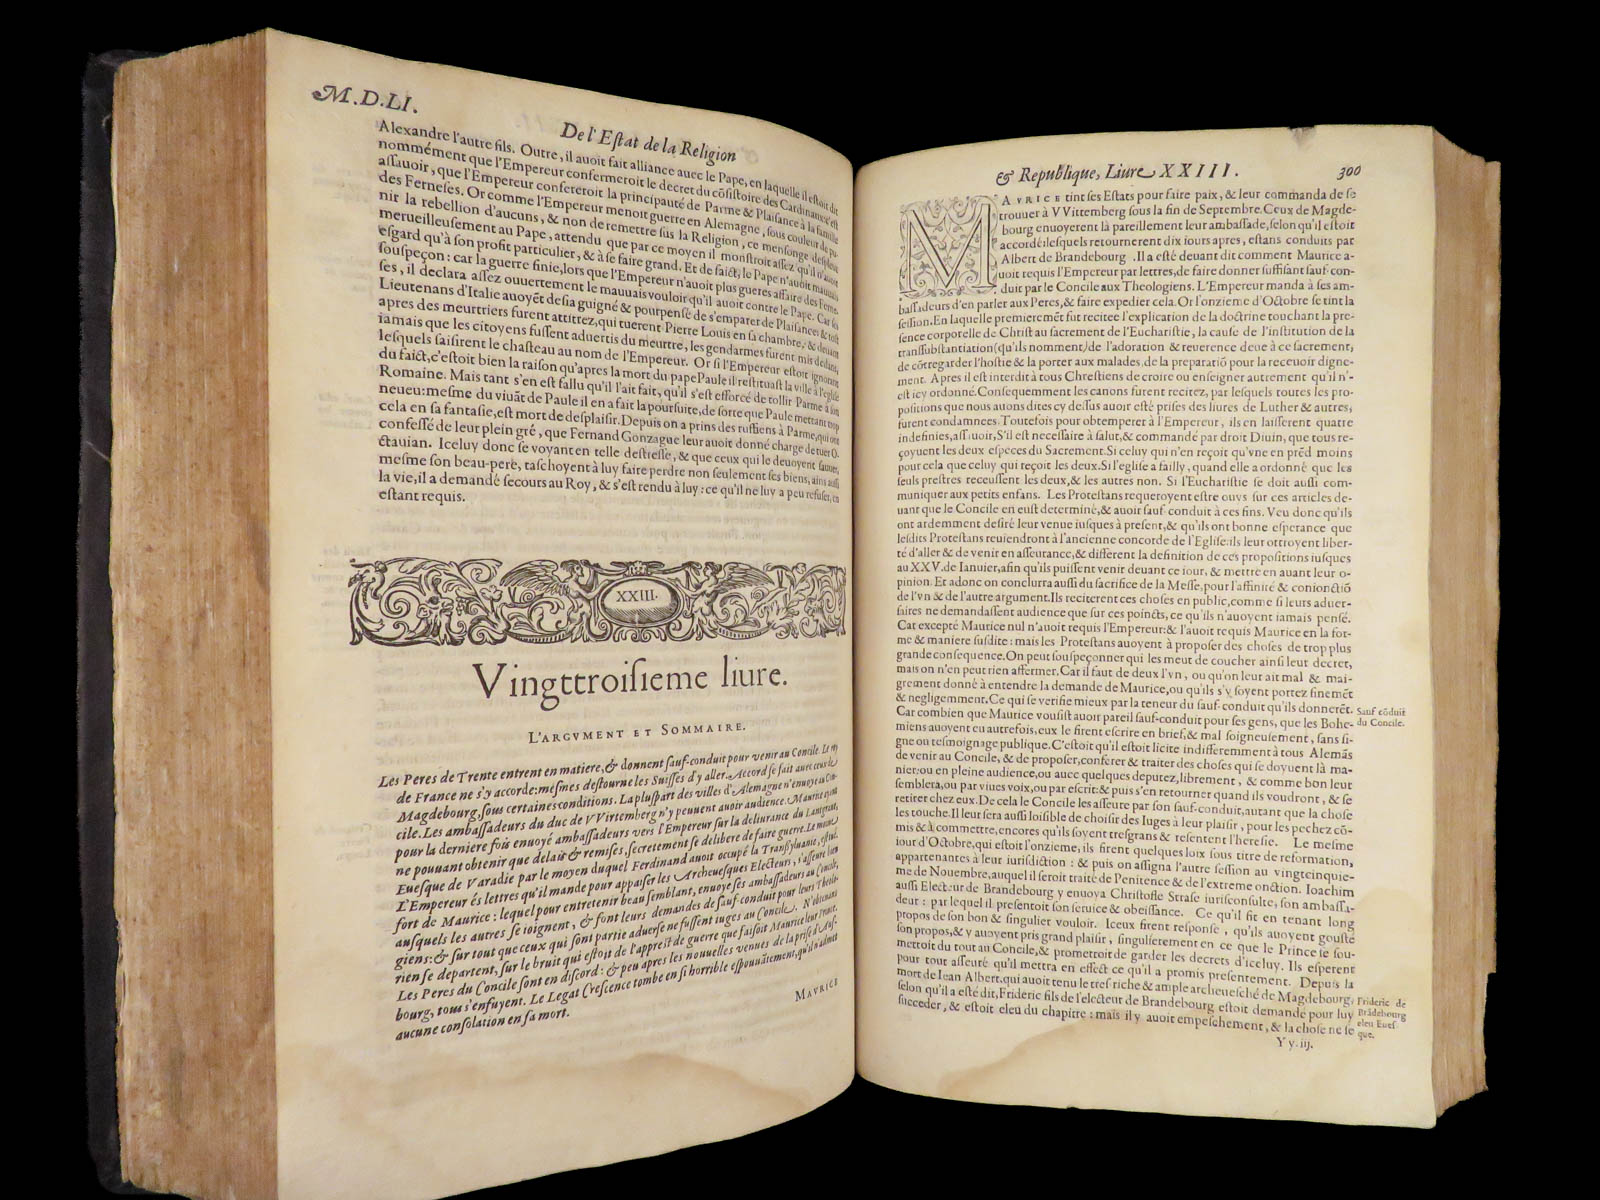 M.D.LI.
De l'Eſtat de la Religion
Alexandre l'autre fils. Outre, il auoit fait alliance auec le Pape, en laquelle il eſtoit dit
nommément que l'Empereur confermeroit le decret du cõſiſtoire des Cardinaux: c'eſt
aſſauoir, que l'Empereur confereroit la principauté de Parme & Plaiſance à la famille
des Ferneſes. Or comme l'Empereur menoit guerre en Alemagne, ſous couleur de pu-
nir la rebellion d'aucuns, & non de remettre ſus la Religion, ce menſonge deſpleut
merueilleuſement au Pape, attendu que par ce moyen il monſtroit aſſez qu'il n'auoit
eſgard qu'à ſon profit particulier, & à ſe faire grand. Et de faict, le Pape n'auoit mauuais
ſouſpeçon: car la guerre finie, lors que l'Empereur n'auoit plus gueres affaire des Ferne-
ſes, il declara aſſez ouuertement le mauuais vouloir qu'il auoit contre le Pape. Car ſes
Lieutenans d'Italie auoyẽt deſia guigné & pourpenſé de s'emparer de Plaiſance, & toſt
apres des meurtriers furent attitrez, qui tuerent Pierre Louis en ſa chambre, & deuant
iamais que les citoyens fuſſent aduertis du meurtre, les gendarmes furent mis dedans,
leſquels ſaiſirent le chaſteau au nom de l'Empereur. Or ſi l'Empereur eſtoit ignorant
du faict, c'eſtoit bien la raiſon qu'apres la mort du pape Paule il reſtituaſt la ville à l'egliſe
Romaine. Mais tant s'en eſt fallu qu'il l'ait fait, qu'il s'eſt efforcé de tollir Parme à ſon
neueu: meſme du viuãt de Paule il en a fait la pourſuite, de ſorte que Paule mettant trop
cela en ſa fantaſie, eſt mort de deſplaiſir. Depuis on a prins des ruffiens à Parme, qui ont
confeſſé de leur plein gré, que Fernand Gonzague leur auoit donné charge de tuer O-
ctauian. Iceluy donc ſe voyant en telle deſtreſſe, & que ceux qui le deuoyent ſauuer,
meſme ſon beau-pere, taſchoyent à luy faire perdre non ſeulement ſes biens, ains auſſi
la vie, il a demandé ſecours au Roy, & s'eſt rendu à luy: ce qu'il ne luy a peu refuſer, en
eſtant requis.
XXIII.
Vingttroiſieme liure.
L'ARGVMENT ET SOMMAIRE.
Les Peres de Trente entrent en matiere, & donnent ſauf-conduit pour venir au Concile. Le roy
de France ne s'y accorde: meſmes deſtourne les Suiſſes d'y aller. Accord ſe fait auec ceux de
Magdebourg, ſous certaines conditions. La pluſpart des villes d'Alemagne n'enuoye au Con-
cile. Les ambaſſadeurs du duc de VVirtemberg n'y peuuent auoir audience. Maurice ayant
pour la derniere fois enuoyé ambaſſadeurs vers l'Empereur ſur la deliurance du Lantgraue,
ne pouuant obtenir que delais & remiſes, ſecretement ſe delibere de faire guerre. Le moine
Eueſque de Varadie par le moyen duquel Ferdinand auoit occupé la Tranſſyluanie, eſt tué.
L'Empereur és lettres qu'il mande pour appaiſer les Archeueſques Electeurs, s'aſſeure bien
fort de Maurice: lequel pour entretenir beau ſemblant, enuoye ſes ambaſſadeurs au Concile,
auſquels les autres ſe ioignent, & font leurs demandes de ſauf-conduit pour leurs Theolo-
giens: & ſur tout que ceux qui ſont partie aduerſe ne fuſſent iuges au Concile. N'obtenans
rien ſe departent, ſur le bruit qui eſtoit de l'appreſt de guerre que faiſoit Maurice leur Prince.
Les Peres du Concile ſont en diſcord: & peu apres les nouuelles venues de la priſe d'Auſ-
bourg, tous s'enfuyent. Le Legat Creſcence tombe en ſi horrible eſpouuãtement, qu'il n'admit
aucune conſolation en ſa mort.
MAVRICE
& Republique, Liure XXIII.
300
MAVRICE tint ſes Eſtats pour faire paix, & leur commanda de ſe
trouuer à VVittemberg ſous la fin de Septembre. Ceux de Magde-
bourg enuoyerent là pareillement leur ambaſſade, ſelon qu'il eſtoit
accordé: leſquels retournerent dix iours apres, eſtans conduits par
Albert de Brandebourg. Il a eſté deuant dit comment Maurice a-
uoit requis l'Empereur par lettres, de faire donner ſuffiſant ſauf-con-
duit par le Concile aux Theologiens. L'Empereur manda à ſes am-
baſſadeurs d'en parler aux Peres, & faire expedier cela. Or l'onzieme d'Octobre ſe tint la
ſeſſion. En laquelle premieremẽt fut recitee l'explication de la doctrine touchant la pre-
ſence corporelle de Chriſt au ſacrement de l'Euchariſtie, la cauſe de l'inſtitution de la
tranſſubſtantiation (qu'ils nomment) de l'adoration & reuerence deuë à ce ſacrement,
de cõtregarder l'hoſtie & la porter aux malades, de la preparatiõ pour la receuoir digne-
ment. Apres il eſt interdit à tous Chreſtiens de croire ou enſeigner autrement qu'il n'-
eſt icy ordonné. Conſequemment les canons furent recitez, par leſquels toutes les pro-
poſitions que nous auons dites cy deſſus auoir eſté priſes des liures de Luther & autres,
furent condamnees. Toutefois pour obtemperer à l'Empereur, ils en laiſſerent quatre
indefinies, aſſauoir, S'il eſt neceſſaire à ſalut, & commandé par droit Diuin, que tous re-
çoyuent les deux eſpeces du Sacrement. Si celuy qui n'en reçoit qu'vne en prẽd moins
pour cela que celuy qui reçoit les deux. Si l'egliſe a failly, quand elle a ordonné que les
ſeuls preſtres receuſſent les deux, & les autres non. Si l'Euchariſtie ſe doit auſſi com-
muniquer aux petits enfans. Les Proteſtans requeroyent eſtre ouys ſur ces articles de-
uant que le Concile en euſt determiné, & auoir ſauf-conduit à ces fins. Veu donc qu'ils
ont ardemment deſiré leur venue iuſques à preſent, & qu'ils ont bonne eſperance que
leſdits Proteſtans reuiendront à l'ancienne concorde de l'Egliſe: ils leur ottroyent liber-
té d'aller & de venir en aſſeurance, & different la definition de ces propoſitions iuſques
au XXV. de Ianuier, afin qu'ils puiſſent venir deuant ce iour, & mettre en auant leur o-
pinion. Et adonc on conclurra auſſi du ſacrifice de la Meſſe, pour l'affinité & conionctiõ
de l'vn & de l'autre argument. Ils reciterent ces choſes en public, comme ſi leurs aduer-
ſaires ne demandaſſent audience que ſur ces poincts, ce qu'ils n'auoyent iamais penſé.
Car excepté Maurice nul n'auoit requis l'Empereur: & l'auoit requis Maurice en la for-
me & maniere ſuſdite: mais les Proteſtans auoyent à propoſer des choſes de trop plus
grande conſequence. On peut ſouſpeçonner qui les meut de coucher ainſi leur decret,
mais on n'en peut rien affermer. Car il faut de deux l'vn, ou qu'on leur ait mal & mai-
grement donné à entendre la demande de Maurice, ou qu'ils s'y ſoyent portez finemẽt
& negligemment. Ce qui ſe verifie mieux par la teneur du ſauf-conduit qu'ils donnerẽt.
Car combien que Maurice vouſiſt auoir pareil ſauf-conduit pour ſes gens, que les Bohe-
miens auoyent eu autrefois, eux le firent eſcrire en brief, & mal ſoigneuſement, ſans ſi-
gne ou teſmoignage publique. C'eſtoit qu'il eſtoit licite indifferemment à tous Alemãs
de venir au Concile, & de propoſer, conferer & traiter des choſes qui ſe doyuent là ma-
nier: ou en pleine audience, ou auec quelques deputez, librement, & comme bon leur
ſemblera, ou par viues voix, ou par eſcrit: & puis s'en retourner quand ils voudront, & ſe
retirer chez eux. De cela le Concile les aſſeure par ſon ſauf-conduit, autant que la choſe
les touche. Il leur ſera auſſi loiſible de choiſir des Iuges à leur plaiſir, pour les pechez cõ-
mis & à commettre, encores qu'ils ſoyent treſgrans & reſentent l'hereſie. Le meſme
iour d'Octobre, qui eſtoit l'onzieme, ils firent quelques loix ſous titre de reformation,
appartenantes à leur iuriſdiction: & puis on aſſigna l'autre ſeſſion au vingtcinquie-
me de Nouembre, auquel il ſeroit traité de Penitence & de l'extreme onction. Ioachim
auſſi Electeur de Brandebourg y enuoya Chriſtofle Straſe iuriſconſulte, ſon ambaſſa-
deur: par lequel il preſentoit ſon ſeruice & obeiſſance. Ce qu'il fit en tenant long
propos de ſon bon & ſingulier vouloir. Iceux firent reſponſe, qu'ils auoyent gouſté
ſon propos, & y auoyent pris grand plaiſir, ſingulierement en ce que le Prince ſe ſou-
mettoit du tout au Concile, & promettroit de garder les decrets d'iceluy. Ils eſperent
pour tout aſſeuré qu'il mettra en effect ce qu'il a promis preſentement. Depuis la
mort de Iean Albert, qui auoit tenu le treſriche & ample archeueſché de Magdebourg,
ſelon qu'il a eſté dit, Frideric fils de l'electeur de Brandebourg eſtoit demandé pour luy
ſucceder, & eſtoit eleu du chapitre: mais il y auoit empeſchement, & la choſe ne ſe
Sauf cõduit
du Concile.
Frideric de
Brãdebourg
eleu Eueſ-
que.
Yy.iij.